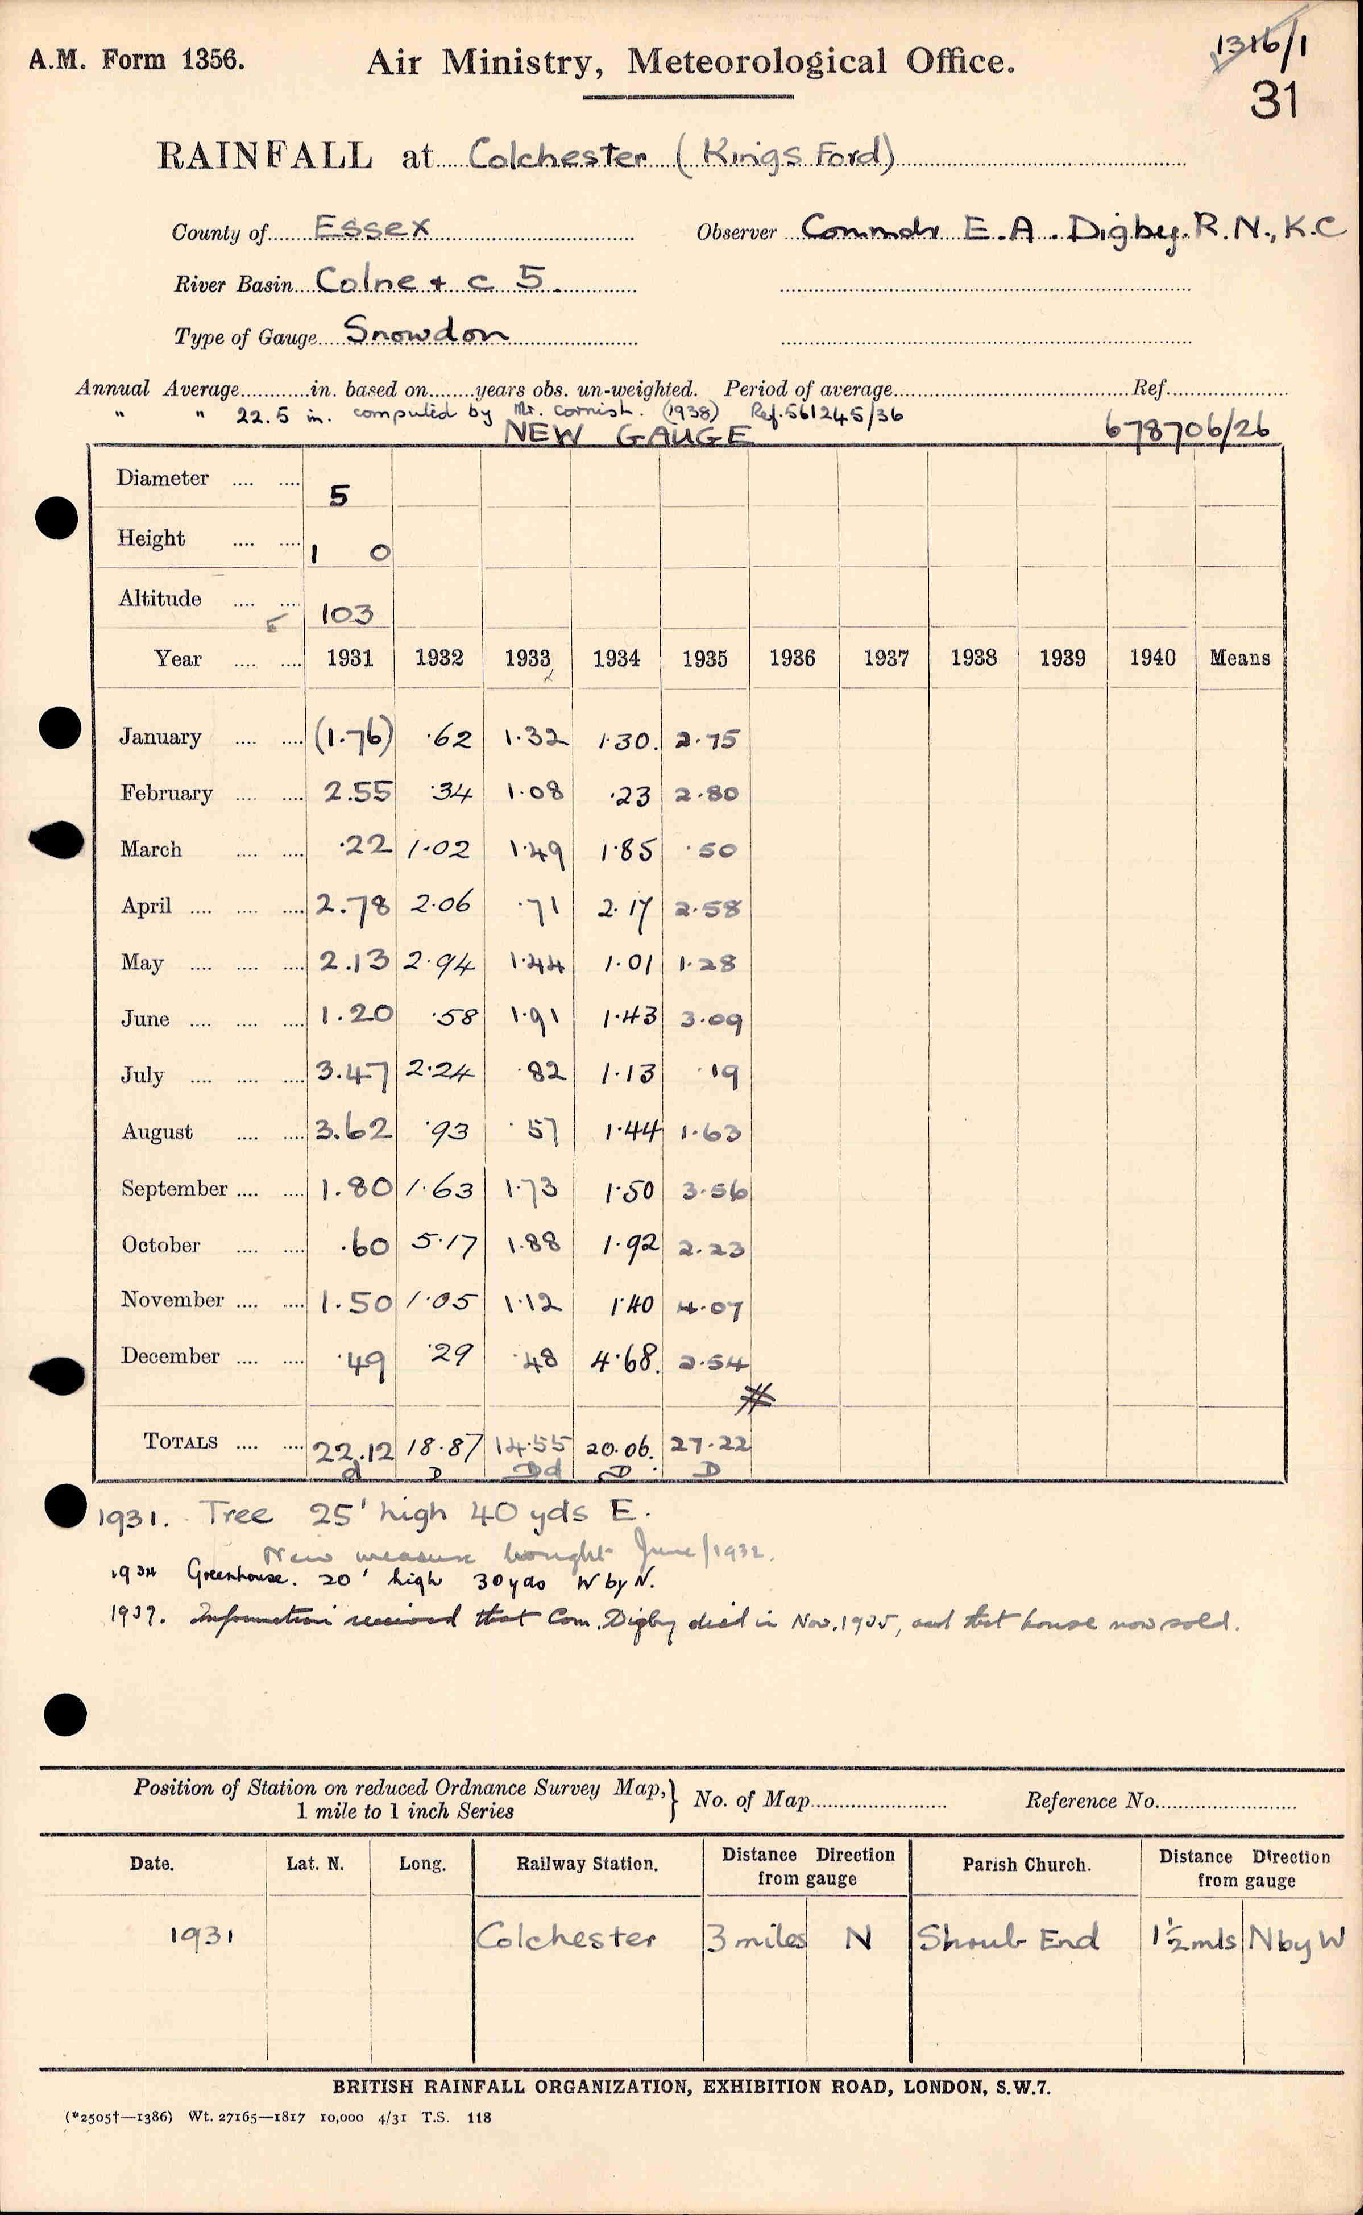 A.M. Form 1356.
Air Ministry, Meteorological Office.
1316/1
31
RAINFALL at Colchester (Kings Ford)
County of Essex
Observer Commdr E.A. Digby. R.N., K.C
River Basin Colne + c 5.
Type of Gauge Snowdon
Annual Average............in. based on........years obs. un-weighted. Period of average................Ref................
" " 22.5 in. computed by Mr. Cornish. (1938) Ref. 561245/36
NEW GAUGE 678706/26
Diameter .... .... 5
Height .... .... 1 0
Altitude .... .... 103
Year .... .... 1931 1932 1933 1934 1935 1936 1937 1938 1939 1940 Means
January .... .... (1.76) .62 1.32 1.30. 2.75
February .... .... 2.55 .34 1.08 .23 2.80
March .... .... .22 1.02 1.49 1.85 .50
April .... .... .... 2.78 2.06 .71 2.17 2.58
May .... .... .... 2.13 2.94 1.44 1.01 1.28
June .... .... .... 1.20 .58 1.91 1.43 3.09
July .... .... .... 3.47 2.24 .82 1.13 .19
August .... .... 3.62 .93 .57 1.44 1.63
September .... .... 1.80 1.63 1.73 1.50 3.56
October .... .... .60 5.17 1.88 1.92 2.23
November .... .... 1.50 1.05 1.12 1.40 4.07
December .... .... .49 .29 .48 4.68. 2.54
#
TOTALS .... .... 22.12 18.87 14.55 20.06. 27.22
d D Dd D D
1931. Tree 25' high 40 yds E.
New measure bought June/1932.
1934 Greenhouse. 20' high 30 yds W by N.
1937. Information received that Com. Digby died in Nov. 1935, and that house now sold.
Position of Station on reduced Ordnance Survey Map,
1 mile to 1 inch Series
No. of Map........................
Reference No........................
Date. Lat. N. Long. Railway Station. Distance Direction from gauge Parish Church. Distance Direction from gauge
1931 Colchester 3 miles N Shrub End 1½ mls N by W
BRITISH RAINFALL ORGANIZATION, EXHIBITION ROAD, LONDON, S.W.7.
(*2505†—1386) Wt. 27165—1817 10,000 4/31 T.S. 118